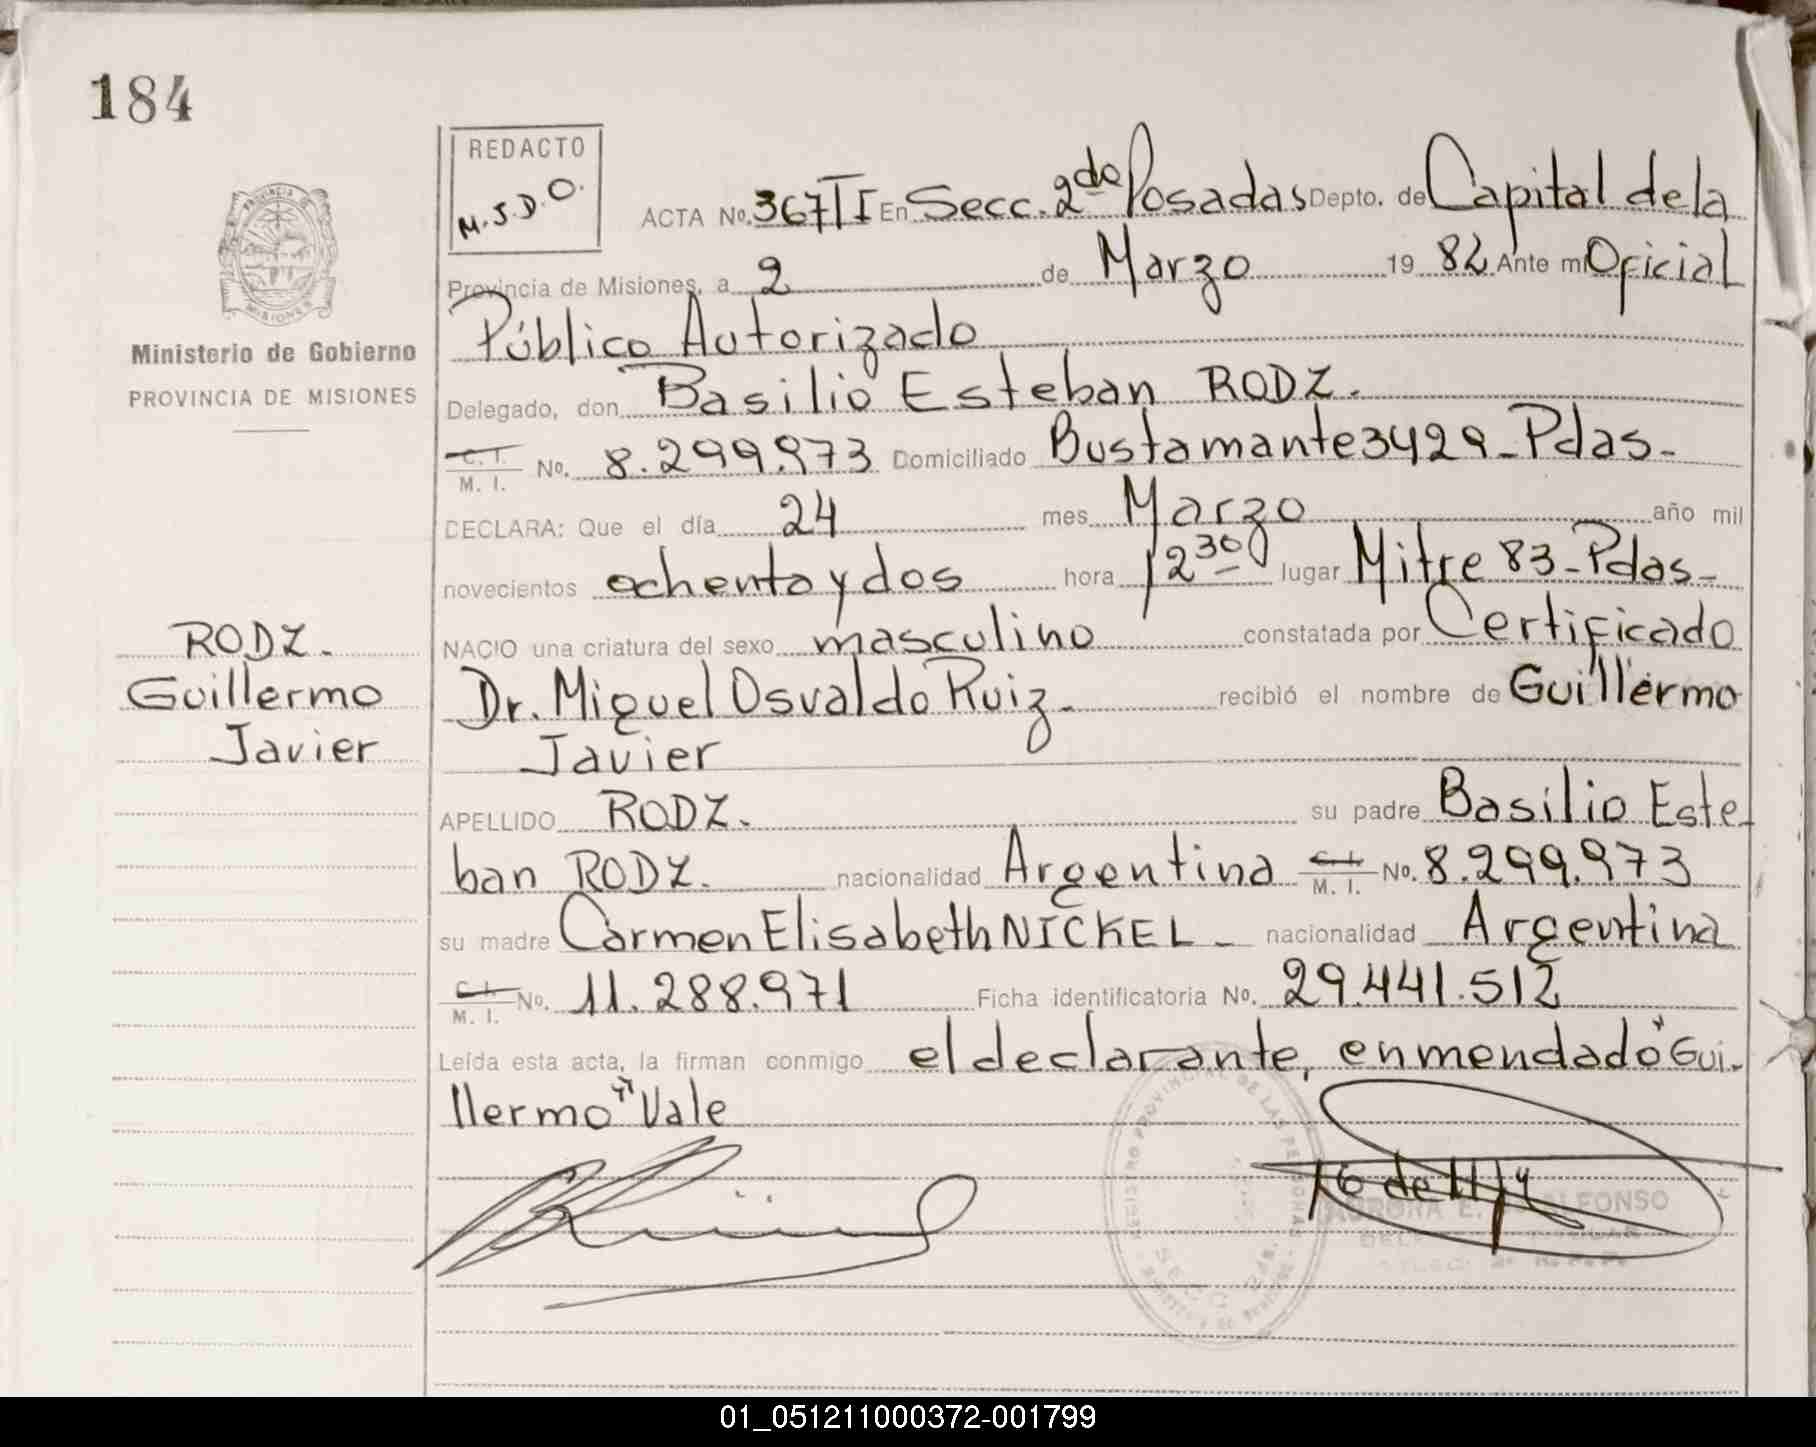 184
REDACTO
M.S.D.O.
PROVINCIA D
MISIONES
Ministerio de Gobierno
PROVINCIA DE MISIONES
ACTA No. 367 TI En Secc. 2da Posadas Depto. de Capital de la
Provincia de Misiones, a 2 de Marzo 19 82 Ante mi Oficial
Público Autorizado
Delegado, don Basilio Esteban RODZ.
C. I.
M. I. No. 8.299.973 Domiciliado Bustamante 3429 - Pdas -
DECLARA: Que el día 24 mes Marzo año mil
novecientos ochenta y dos hora 12 30 lugar Mitre 83 - Pdas -
NACIO una criatura del sexo masculino constatada por Certificado
Dr. Miguel Osvaldo Ruiz - recibió el nombre de Guillermo
Javier
RODZ.
Guillermo
Javier
APELLIDO RODZ. su padre Basilio Este-
ban RODZ. nacionalidad Argentina C. I. M. I. No. 8.299.973
su madre Carmen Elisabeth NICKEL - nacionalidad Argentina
C. I. M. I. No. 11.288.971 Ficha identificatoria No. 29.441.512
Leída esta acta, la firman conmigo el declarante, enmendado "Gui-
llermo" Vale
REGISTRO PROVINCIAL DE LAS PERSONAS
AURORA E. ALFONSO
01_051211000372-001799